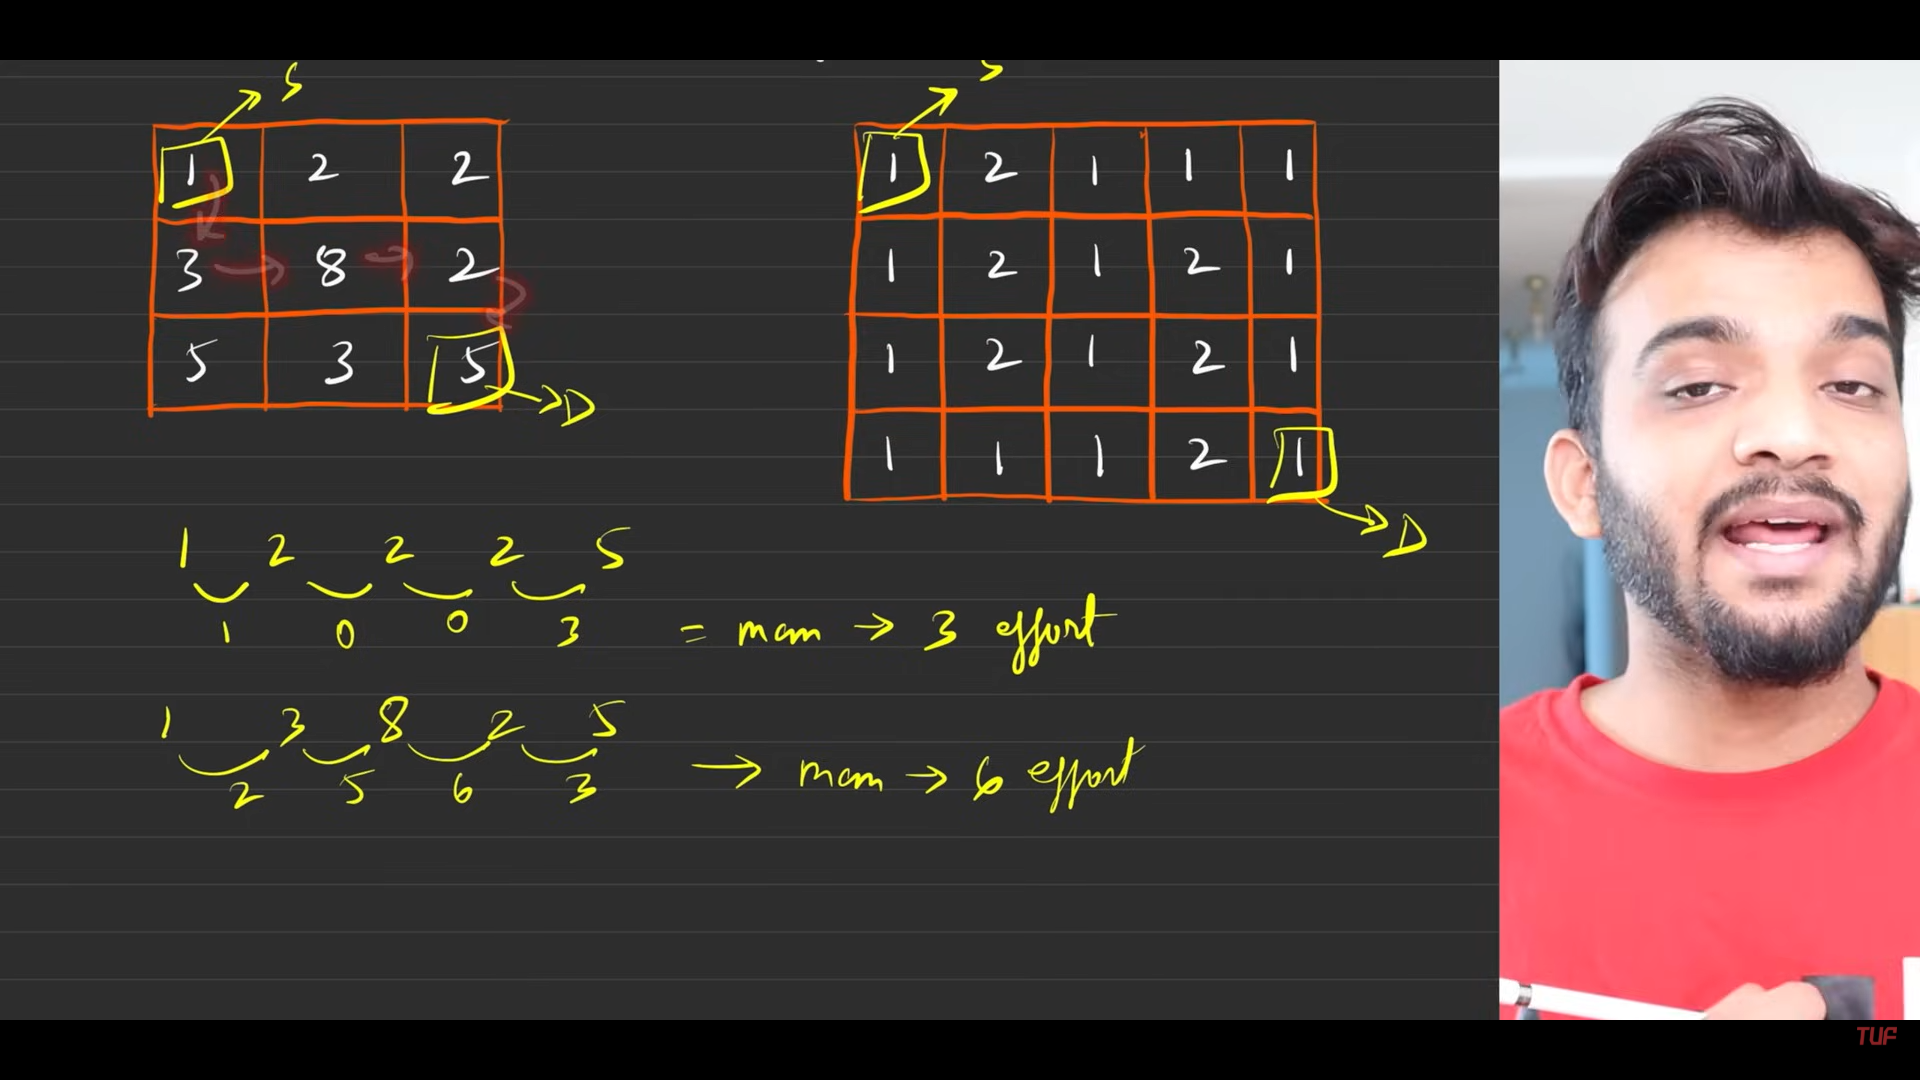 S
S
1 2 2
3 → 8 → 2
5 3 5
→ D
1 2 1 1 1
1 2 1 2 1
1 2 1 2 1
1 1 1 2 1
→ D
1 2 2 2 5
1 0 0 3 = max → 3 effort
1 3 8 2 5
2 5 6 3 → max → 6 effort
TUF